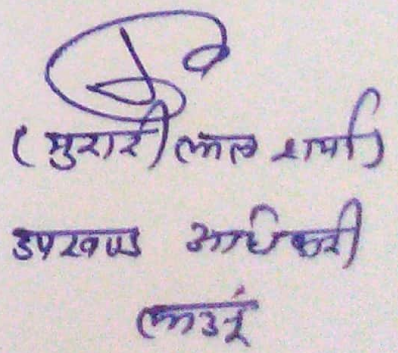 (मुरारी लाल शर्मा)
उपखण्ड अधिकारी
लाडनूं